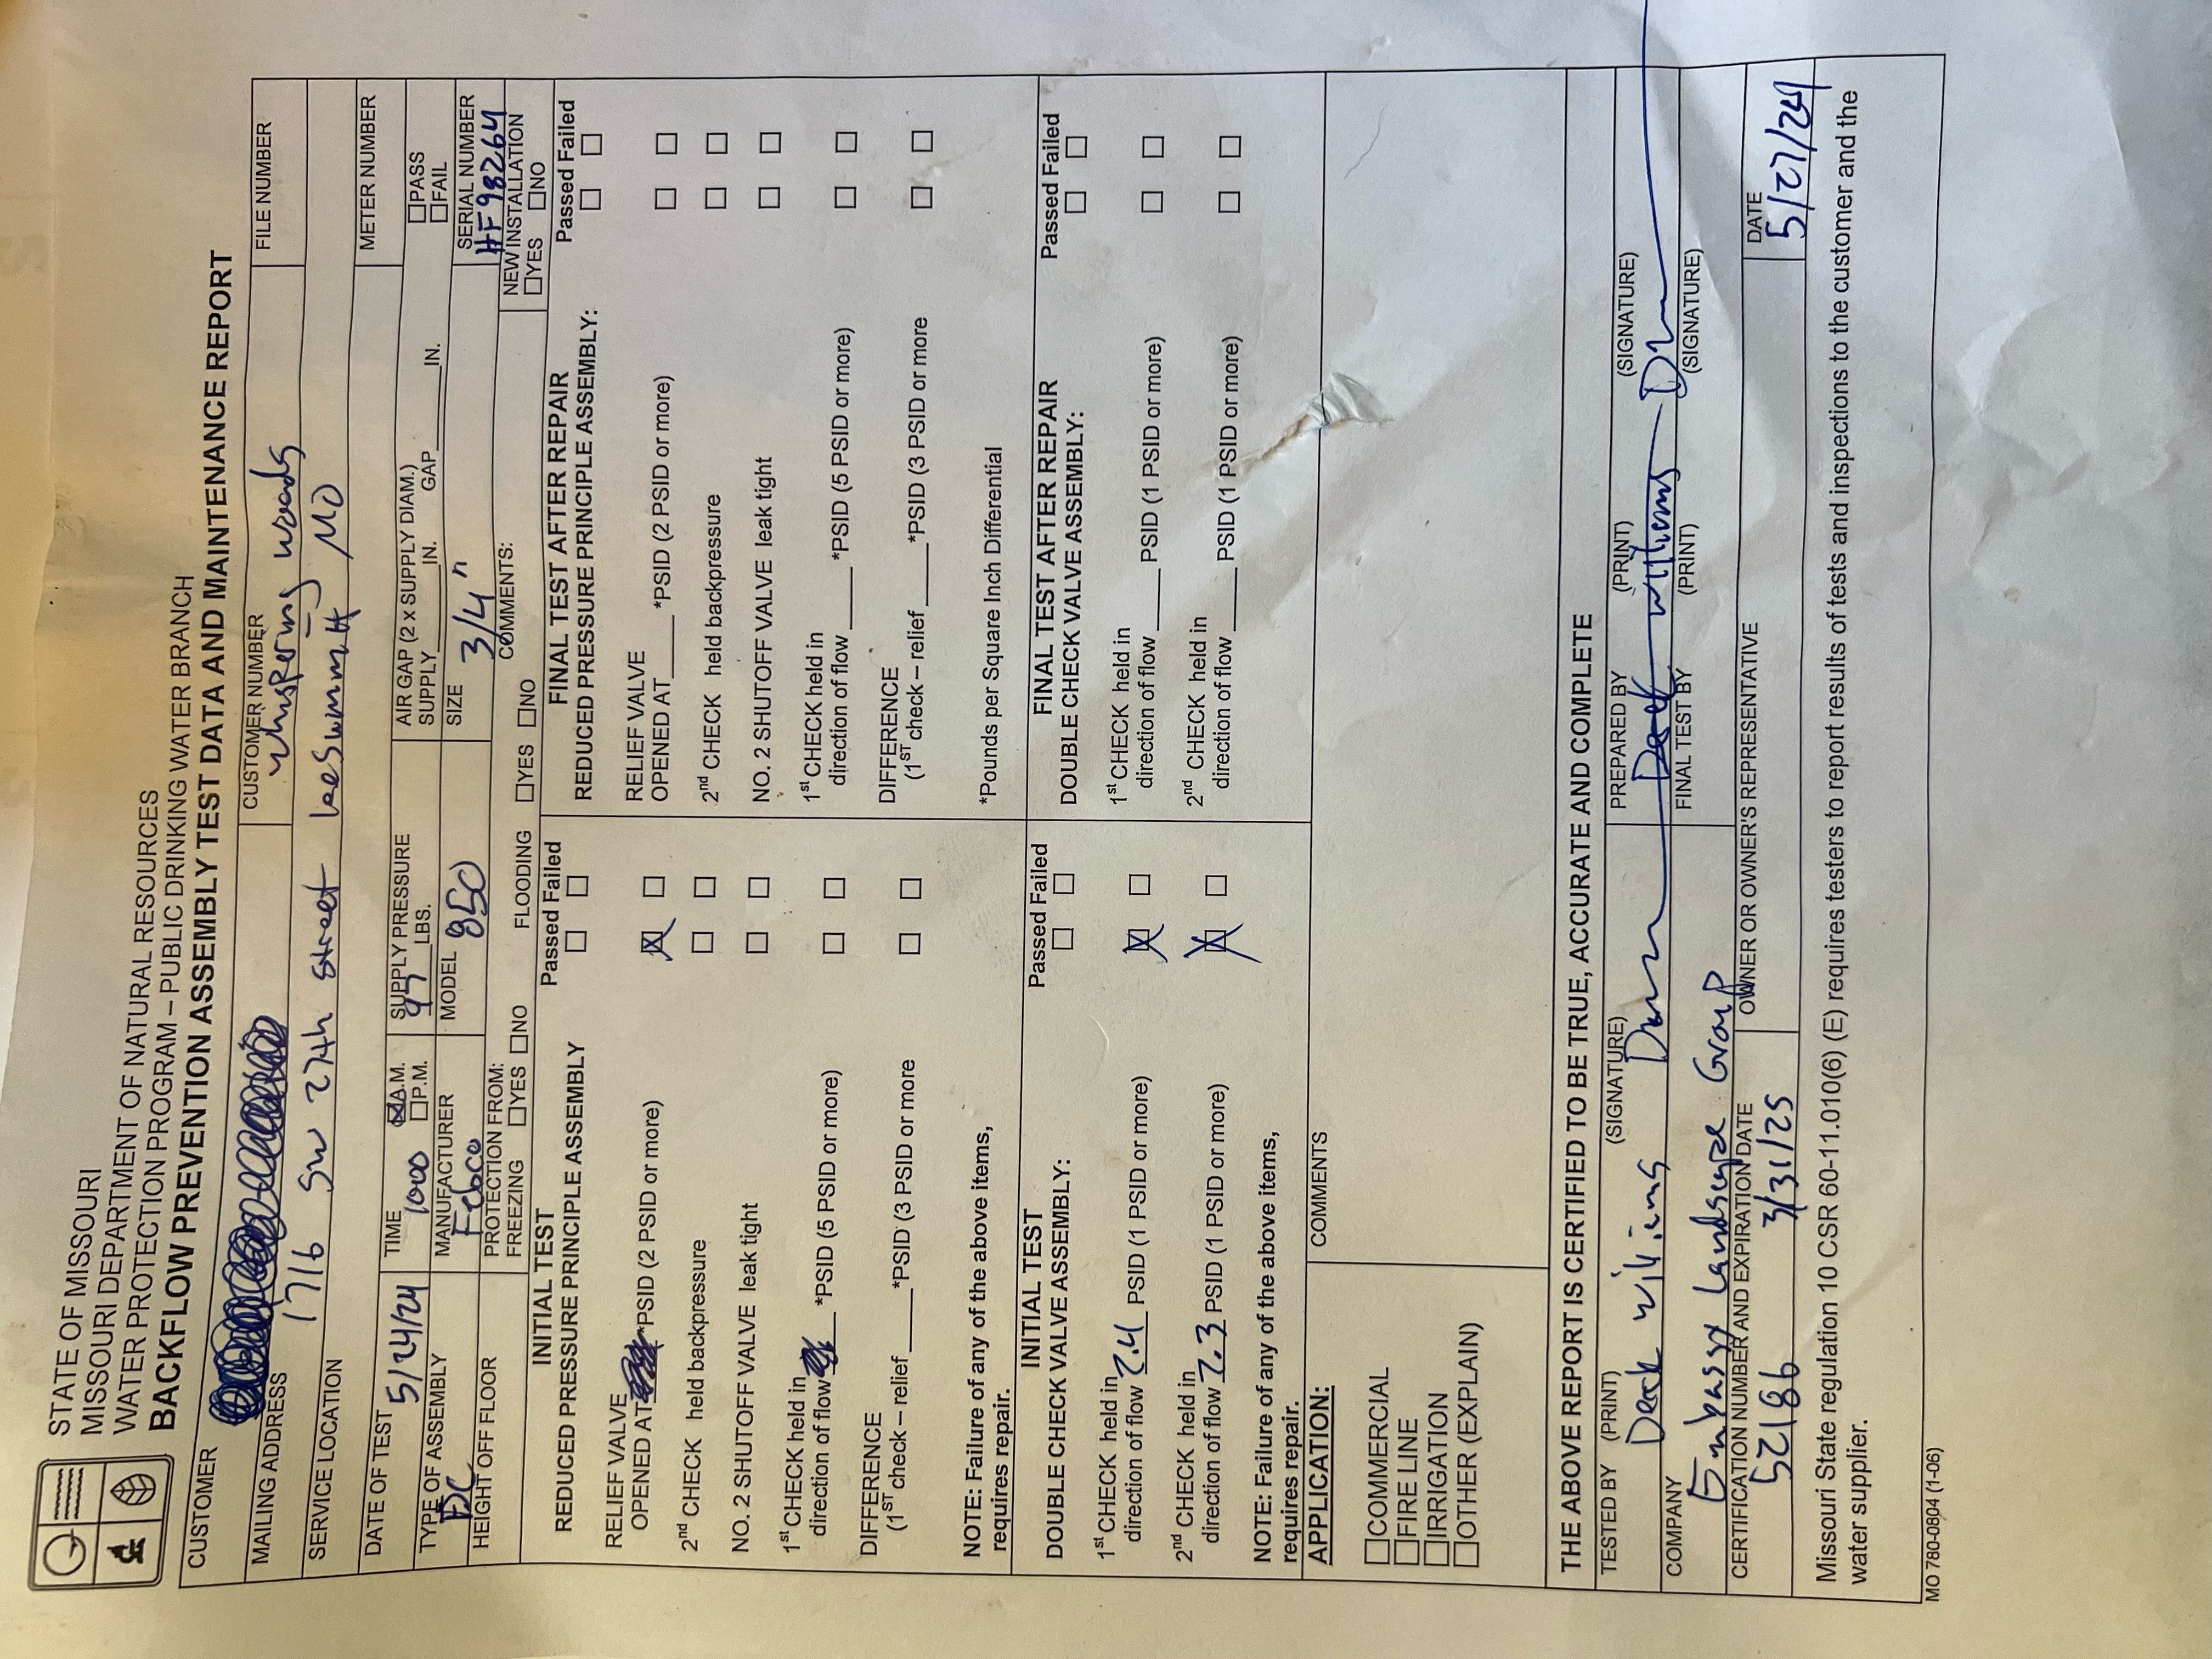 STATE OF MISSOURI
MISSOURI DEPARTMENT OF NATURAL RESOURCES
WATER PROTECTION PROGRAM – PUBLIC DRINKING WATER BRANCH
BACKFLOW PREVENTION ASSEMBLY TEST DATA AND MAINTENANCE REPORT
CUSTOMER CUSTOMER NUMBER FILE NUMBER
whispering woods
MAILING ADDRESS
1716 SW 27th street leesummit MO
SERVICE LOCATION METER NUMBER
DATE OF TEST 5/24/24 TIME 1000 ☒A.M. ☐P.M. SUPPLY PRESSURE 97 LBS. AIR GAP (2 x SUPPLY DIAM.) SUPPLY____IN. GAP____IN. ☐PASS ☐FAIL
TYPE OF ASSEMBLY DC MANUFACTURER Febco MODEL 850 SIZE 3/4" SERIAL NUMBER HF98264
HEIGHT OFF FLOOR PROTECTION FROM: FREEZING ☐YES ☐NO FLOODING ☐YES ☐NO COMMENTS: NEW INSTALLATION ☐YES ☐NO
INITIAL TEST
REDUCED PRESSURE PRINCIPLE ASSEMBLY Passed Failed
☐ ☐
RELIEF VALVE
OPENED AT *PSID (2 PSID or more) ☒ ☐
2nd CHECK held backpressure ☐ ☐
NO. 2 SHUTOFF VALVE leak tight ☐ ☐
1st CHECK held in
direction of flow____ *PSID (5 PSID or more) ☐ ☐
DIFFERENCE
(1ST check – relief____*PSID (3 PSID or more ☐ ☐
NOTE: Failure of any of the above items,
requires repair.
FINAL TEST AFTER REPAIR
REDUCED PRESSURE PRINCIPLE ASSEMBLY: Passed Failed
☐ ☐
RELIEF VALVE
OPENED AT____*PSID (2 PSID or more) ☐ ☐
2nd CHECK held backpressure ☐ ☐
NO. 2 SHUTOFF VALVE leak tight ☐ ☐
1st CHECK held in
direction of flow____ *PSID (5 PSID or more) ☐ ☐
DIFFERENCE
(1ST check – relief____*PSID (3 PSID or more ☐ ☐
*Pounds per Square Inch Differential
INITIAL TEST
DOUBLE CHECK VALVE ASSEMBLY: Passed Failed
☐ ☐
1st CHECK held in
direction of flow 2.4 PSID (1 PSID or more) ☒ ☐
2nd CHECK held in
direction of flow 2.3 PSID (1 PSID or more) ☒ ☐
NOTE: Failure of any of the above items,
requires repair.
FINAL TEST AFTER REPAIR
DOUBLE CHECK VALVE ASSEMBLY: Passed Failed
☐ ☐
1st CHECK held in
direction of flow____ PSID (1 PSID or more) ☐ ☐
2nd CHECK held in
direction of flow____ PSID (1 PSID or more) ☐ ☐
APPLICATION: COMMENTS
☐COMMERCIAL
☐FIRE LINE
☐IRRIGATION
☐OTHER (EXPLAIN)
THE ABOVE REPORT IS CERTIFIED TO BE TRUE, ACCURATE AND COMPLETE
TESTED BY (PRINT) (SIGNATURE) PREPARED BY (PRINT) (SIGNATURE)
Derek Williams Derek Williams
COMPANY FINAL TEST BY (PRINT) (SIGNATURE)
Embassy Landscape Group
CERTIFICATION NUMBER AND EXPIRATION DATE OWNER OR OWNER'S REPRESENTATIVE DATE
52186 3/31/25 5/27/24
Missouri State regulation 10 CSR 60-11.010(6) (E) requires testers to report results of tests and inspections to the customer and the
water supplier.
MO 780-0804 (1-06)